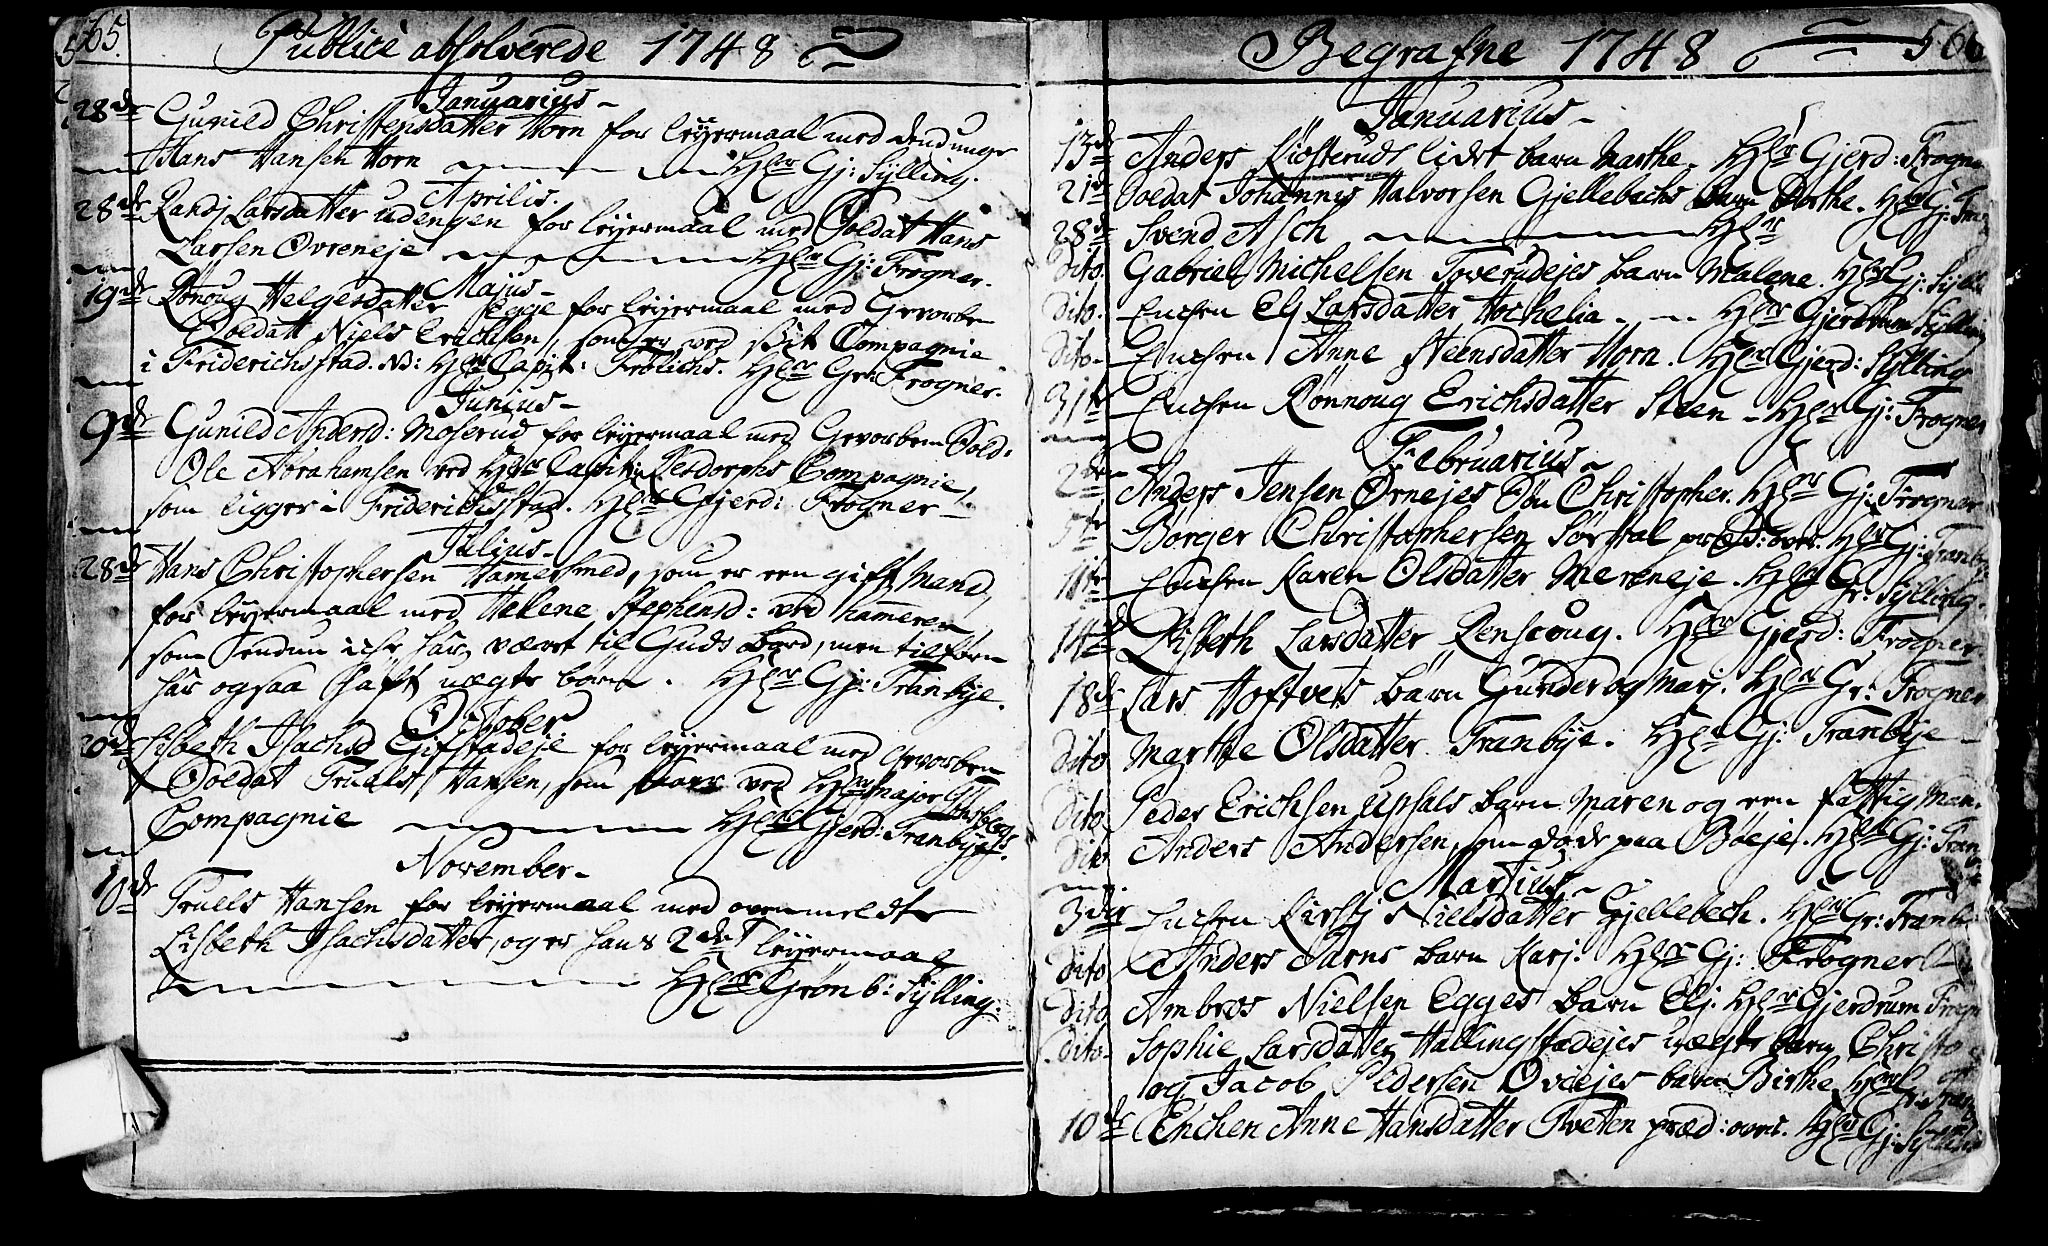 565.
Publicè absolverede 1748
Januarius
28de Gunild Christensdatter Horn for leyermaal med dend unge
Hans Hansen Horn Hr Gj: Sylling.
Aprilis.
28de Randj Larsdatter udengen for leyermaal med Soldat Hans
Larsen Ovreneje Hr Gj: Frogner.
Majus
19de Rønoug Helgesdatter Egge for leyermaal med Gevorben
Soldatt Niels Erichsen, som er ved sit Compagnie
i Friderichstad. NB: Hr Capit: Frölichs. Hr Gr: Frogner.
Junius
9de Gunild Andersd: Moserud for leyermaal med Gevorben Sold:
Ole Abrahamsen ved Hr Capit: Compagnie,
som ligger i Friderichstad. Hr Gjerd: Frogner
Julius
28de Hans Christophersen Hamersmed, som er een gift Mand,
for leyermaal med Helene Stephensd: ved hameren
som endnu icke har været til Guds bord, men tilforn
har ogsaa haft uægte børn. Hr Gj: Tranbye.
October
20de Lisbeth Isachsd Gifstadeje for leyermaal med Gevorben
Soldat Truels Hansen, som staar ved Hr Major
Compagnie Hr Gjerd: Tranbye.
November
10de Truels Hansen for leyermaal med ovenmeldte
Lisbeth Isachsdatter, og er hans 2det leyermaal
Hr Grönb: Sylling.
566
Begrafne 1748
Januarius
13de Anders Kiösteruds lidet barn Marthe. Hr Gjerd: Frogne
21de Soldat Johannes Halvorsen Gjellebechs barn Dorthe. Hr Gj: Tran
28de Svend Asch Hr
dito. Gabriel Michelsen Toverudejes barn Malene. Hr Gj: Sylli
dito. Enchen Elj Larsdatter Hochelia Hr Gjerdrum Sylling
dito Enchen Anne Steensdatter Horn. Hr Gjerd: Sylling
31te Enchen Rønnoug Erichsdatter Steen Hr Gj: Frogner
Februarius
2den Anders Jensen Ornejes Sön Christopher. Hr Gj: Frogner
5te Börger Christophersen Sörstal præd: over. Hr Gj: Tranby
11te Enchen Karen Olsdatter Mereneje. Hr Gr: Sylling.
14de Lisbeth Larsdatter Renscoug. Hr Gjerd: Frogner
18de Lars Hoftvets barn Gunder og Marj. Hr Gr: Frogner
dito Marthe Olsdatter Tranbye. Hr Gj: Tranbye
dito Peder Erichsen Upsals barn Maren og een fattig Man
dito Anders Andersen, som døde paa Böeje. Hr Gj: Tran
Martius
3die Enchen Kirstj Nielsdatter Gjellebech. Hr Gr: Tranb
dito Anders Jarns barn Karj: Hr Gj: Frogner
dito Ambros Nielsen Egges barn Elj. Hr Gjerdrum Frogn
dito Sophie Larsdatter Hallingstadejes uægte barn Christo
og Jacob Pedersen Oviejes barn Birthe Hr Gr: Tranb
10de Enchen Anne Hansdatter Tveten præd: over. Hr Gj: Sylling